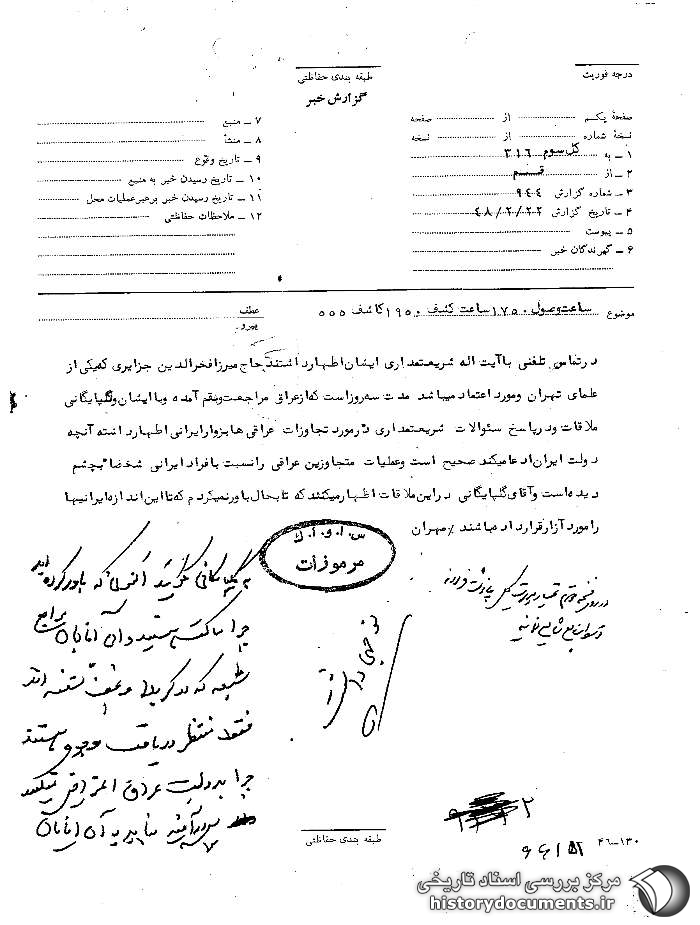 درجه فوریت
طبقه بندی حفاظتی
گزارش خبر
صفحهٔ یکم از صفحه
نسخهٔ شماره از نسخه
۱ ــ به کل سوم ۳۱۶
۲ ــ از قم
۳ ــ شماره گزارش ۹۴۴
۴ ــ تاریخ گزارش ۴۸/۲/۲۲
۵ ــ پیوست
۶ ــ گیرندگان خبر
۷ ــ منبع
۸ ــ منشأ
۹ ــ تاریخ وقوع
۱۰ ــ تاریخ رسیدن خبر به منبع
۱۱ ــ تاریخ رسیدن خبر برهبر عملیات محل
۱۲ ــ ملاحظات حفاظتی
موضوع ساعت وصول ۱۷۵۰ ساعت کشف ۱۹۵۰ کاشف ۵۵۵
عطف
پیرو
در تماس تلفنی با آیت اله شریعتمداری ایشان اظهار داشتند حاج میرزا فخرالدین جزایری که یکی از
علمای تهران و مورد اعتماد میباشد مدت سه روز است که از عراق مراجعت و بقم آمده و با ایشان و گلپایگانی
ملاقات و در پاسخ سئوالات شریعتمداری در مورد تجاوزات عراقی ها بزوار ایرانی اظهار داشته آنچه
دولت ایران ادعا میکند صحیح است و عملیات متجاوزین عراقی را نسبت بافراد ایرانی شخصا بچشم
دیده است و آقای گلپایگانی در این ملاقات اظهار میکنند که تا بحال باور نمیکردم که تا این اندازه ایرانیها
را مورد آزار قرار داده باشند / مهران
س.ا.و.ا.ک
مرموزات
به گلپایگانی بگوئید اکنون که باور کرده اید
چرا ساکت هستید و آن آقایان مراجع
که در کربلا و نجف نشسته اند
فقط منتظر دریافت وجوه هستند
چرا به دولت عراق اعتراض نمیکنند
طبقه بندی حفاظتی
۱۳۰ــ۴۶
مرکز بررسی اسناد تاریخی
historydocuments.ir